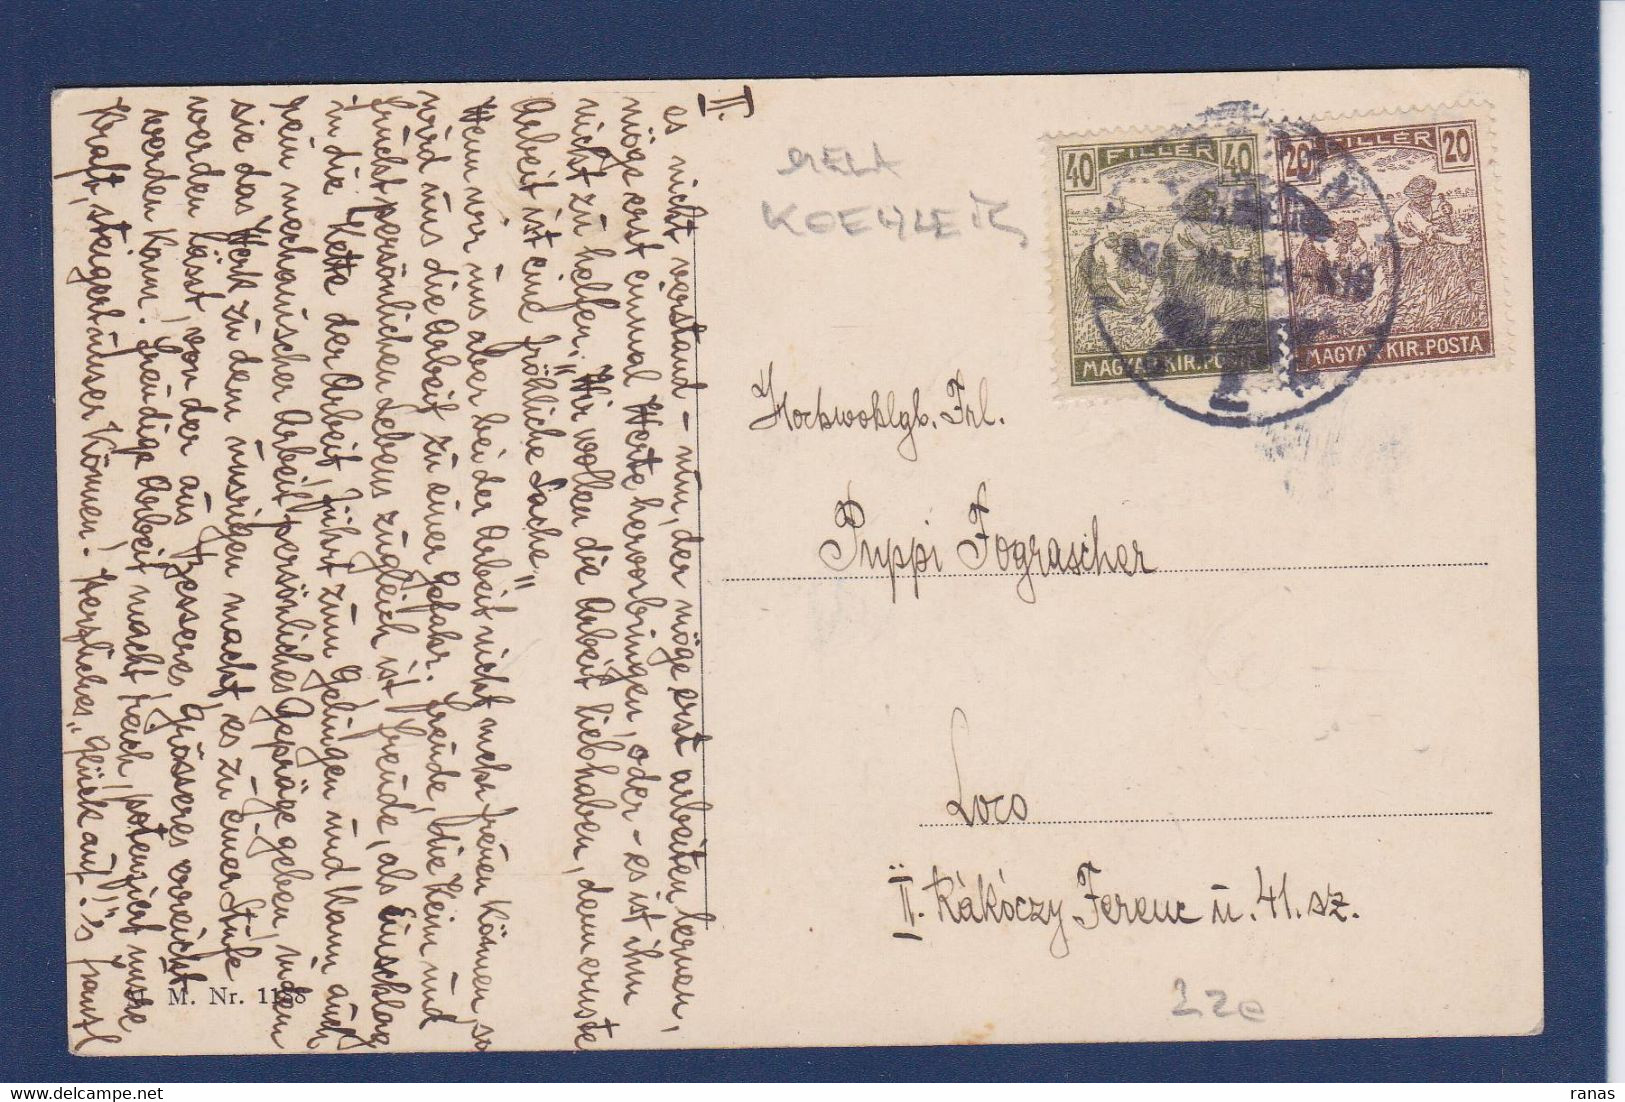 II.
es nicht verstand – nun, der möge erst arbeiten lernen,
möge erst einmal Werte hervorbringen, oder – es ist ihm
nicht zu helfen. „Wir wollen die Arbeit liebhaben, denn ernste
Arbeit ist eine fröhliche Sache"
Wenn wir uns aber bei der Arbeit nicht mehr freuen können, so
wird uns die Arbeit zu einer Gefahr. Freude, die Keim und
Frucht persönlichen Lebens zugleich ist, Freude, als Einschlag
in die Kette der Arbeit, führt zum Gelingen und kann auch
rein mechanischer Arbeit persönliches Gepräge geben, indem
sie das Werk zu dem unsrigen macht, es zu einer Stufe
werden lässt, von der aus Besseres, Grösseres erreicht
werden kann. Freudige Arbeit macht reich, potenziert unsre
Kraft, steigert unser Können! Herzliches „Glück auf!"'s Franzl
M. Nr. 1188
MELA
KOEHLER
40 FILLÉR 40
MAGYAR KIR. POSTA
20 FILLÉR 20
MAGYAR KIR. POSTA
Hochwohlgb. Frl.
Puppi Fograscher
Loco
II. Rákóczy Ferenc u. 41. sz.
22e
ranas